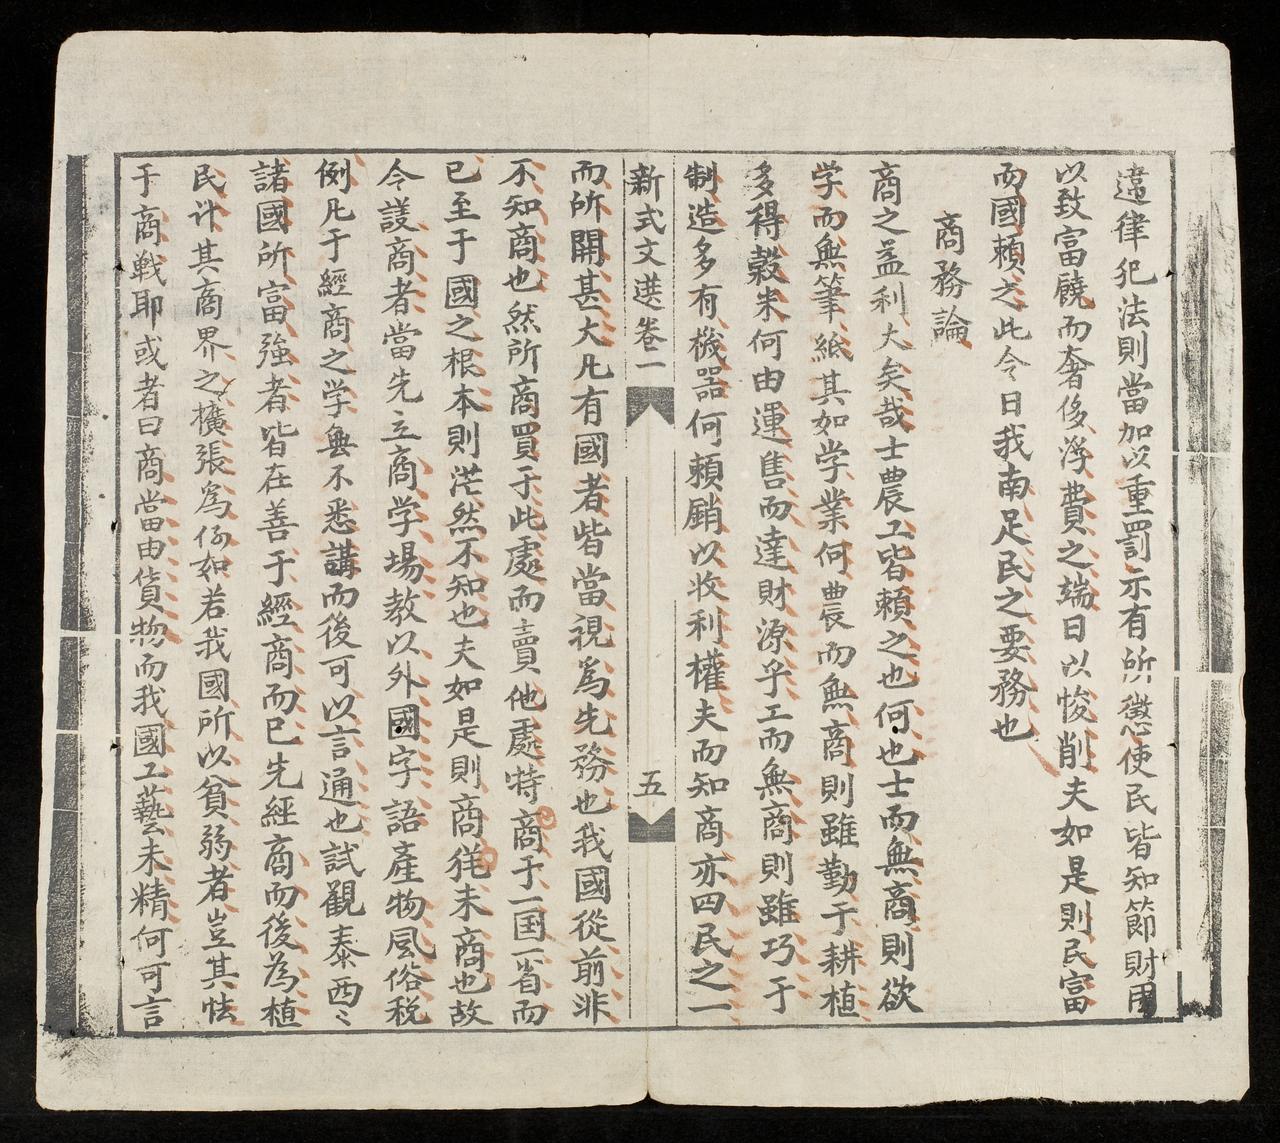 違律犯法則當加以重罰示有所懲使民皆知節財用
以致富饒而奢侈浮費之端日以悛削夫如是則民富
而國賴之此今日我南足民之要務也
商務論
商之益利大矣哉士農工皆賴之也何也士而無商則欲
学而無筆紙其如学業何農而無商則雖勤于耕植
多得穀米何由運售而達財源乎工而無商則雖巧于
制造多有機器何賴銷以收利權夫而知商亦四民之一
新式文選卷二
五
而所關甚大凢有國者皆當視為先務也我國從前非
不知商也然所商買于此處而賣他處特商于一国一省而
已至于國之根本則茫然不知也夫如是則商犹未商也故
今議商者當先立商学場教以外國字語產物風俗税
例凢于經商之学無不悉講而後可以言通也試觀泰西〻
諸國所富強者皆在善于經商而已先經商而後為植
民计其商界之擴張為何如若我國所以貧弱者豈其怯
于商戦耶或者曰商當由貨物而我國工藝未精何可言